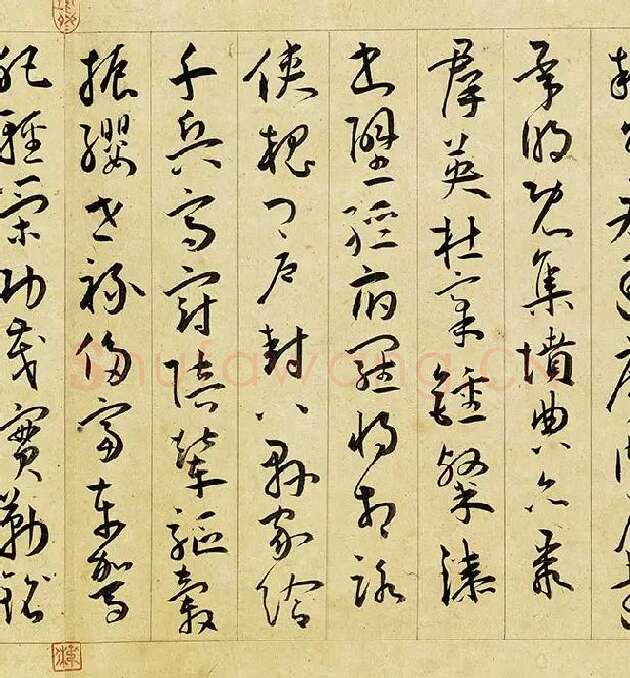 疑星右通廣內左達
承明既集墳典亦聚
群英杜稾鍾隸漆
書壁經府羅將相路
俠槐卿戶封八縣家給
千兵高冠陪輦驅轂
振纓世祿侈富車駕
肥輕策功茂實勒碑
shufawang.CN